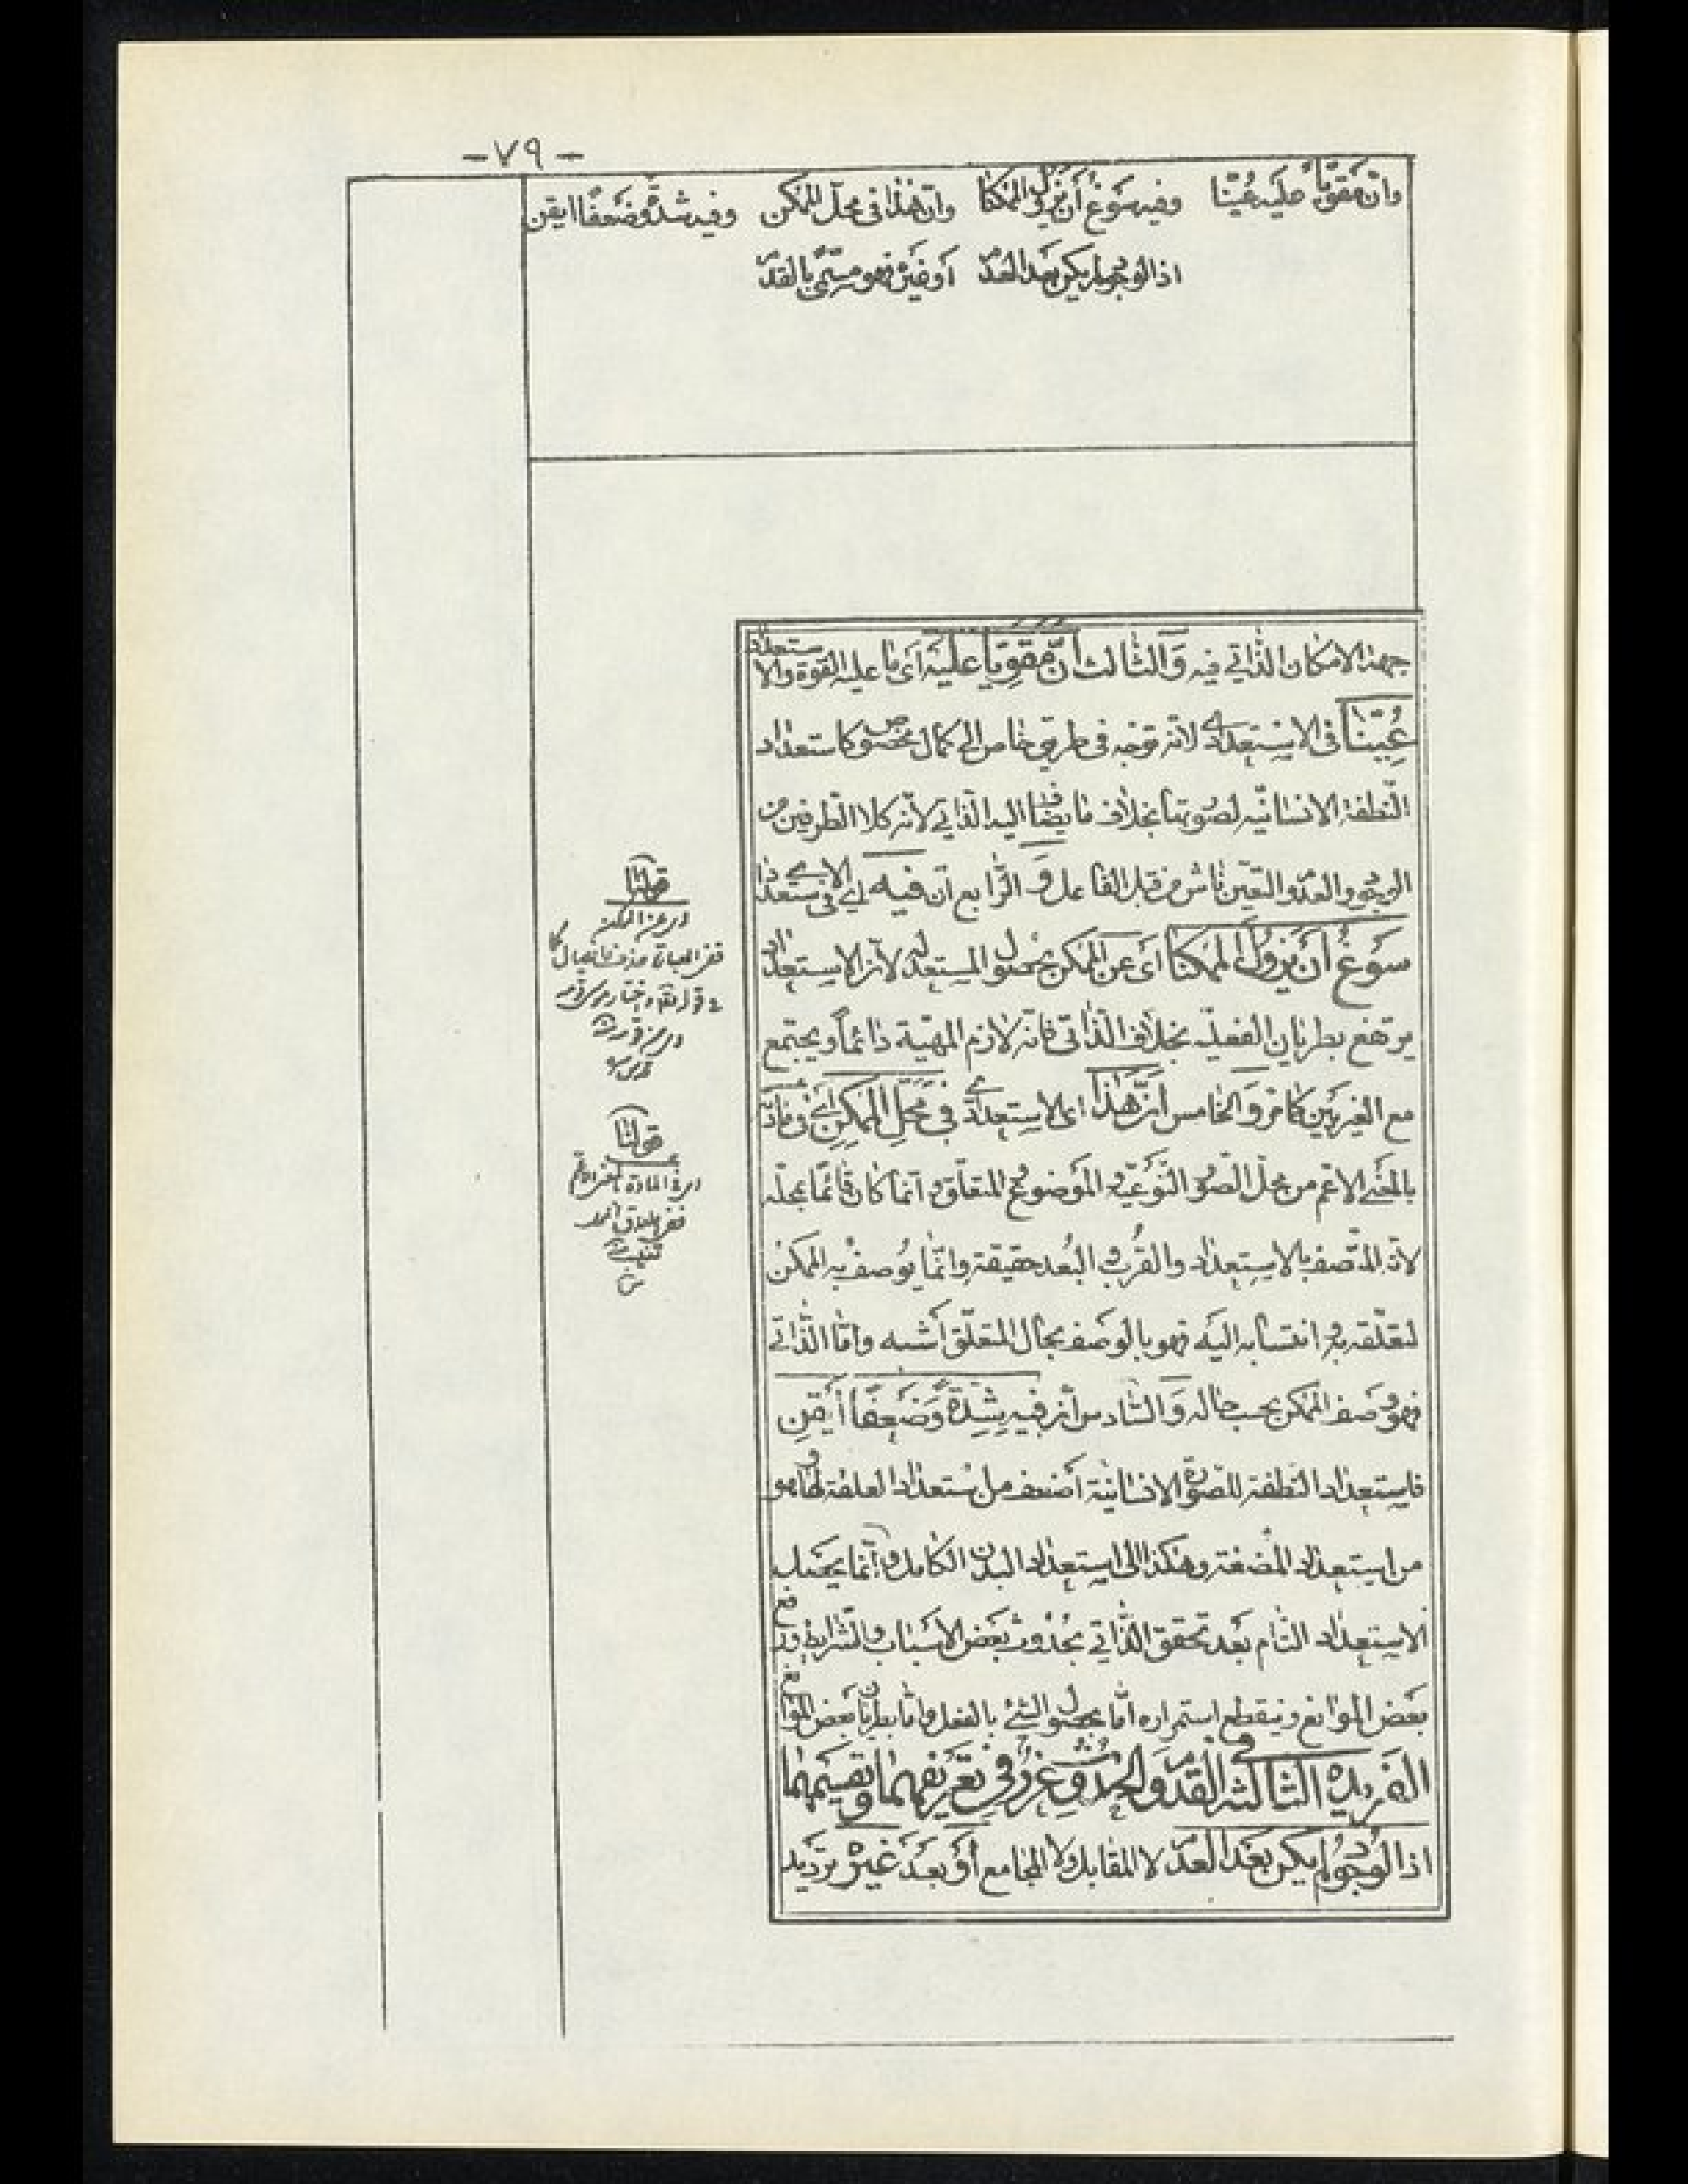 -٧٩-
وانّ مقويًّا عليه عُيّنا وفيه سوغ أن يزول الممكنا وانّ هذا في محلّ الممكن وفيه شدّة وضعفًا ايقن
اذا الوجود لم يكن بعد العدم أو غيره فهو مسمّى بالقدم
جهة الامكان الذاتي فيه وَالثالث أنّ مَقوِيّاً عليَه أي ما عليه القوة والاستعداد
عُيِّنا في الاستعدادي لانه توجه في طريق خاص الى كمال مخصوص كاستعداد
النّطفة الانسانيّة لصورتها بخلاف ما يضاف اليه الذاتي لانّه كلا الطرفين من
الوجود والعدم والتعيّن ناش من قبل الفاعل وَ الرّابع أن فيه اي في الاستعدادي
سَوغُ أن يَزولَ الممكنا أي عن الممكن بحصول المستعد له لأن الاستعداد
يرتفع بطريان الفعلية بخلاف الذّاتي فانه لازم المهيّة دائماً ويجتمع
مع الغيريين كما مرّ وَ الخامس أنّ هذا اي الاستعدادي في محلّ الممكن أي في مادّته
بالمعنى الاعم من محل الصّور النّوعيّة و الموضوع و المتعلّق و انما كان قائمًا بمحلّه
لانه المتّصف بالاستعداد والقرب و البُعد حقيقة وانّما يُوصف به الممكن
لتعلّقه به و انتسابه اليه فهو بالوصف بحال المتعلّق أشبه وامّا الذّاتي
فهو وصف الممكن بحسب حاله وَ السّادس أنّ فيه شِدّةً وَضَعفًا أيقِن
فاستعداد النّطفة للصّورة الانسانيّة أضعف من استعداد العلقة لها وهو
من استعداد المضغة وهكذا الى استعداد البدن الكامل و انّما يحصل
الاستعداد التام بَعد تحقق الذّاتي بحُدوث بعض الأسباب والشّرايط ورفع
بعض الموانع وينقطع استمراره امّا بحصول الشئ بالفعل وامّا بطريان بعض الموانع
الفريدة الثالثة في القدم والحدوث غرر في تعريفهما وتقسيمهما
اذا الوجود لم يكن بَعدَ العدم لا المقابل ولا المجامع أو بعدَ غيره ترديد
قولنا
اي عن الممكن
اي من قومه
قولنا
اي في المادة